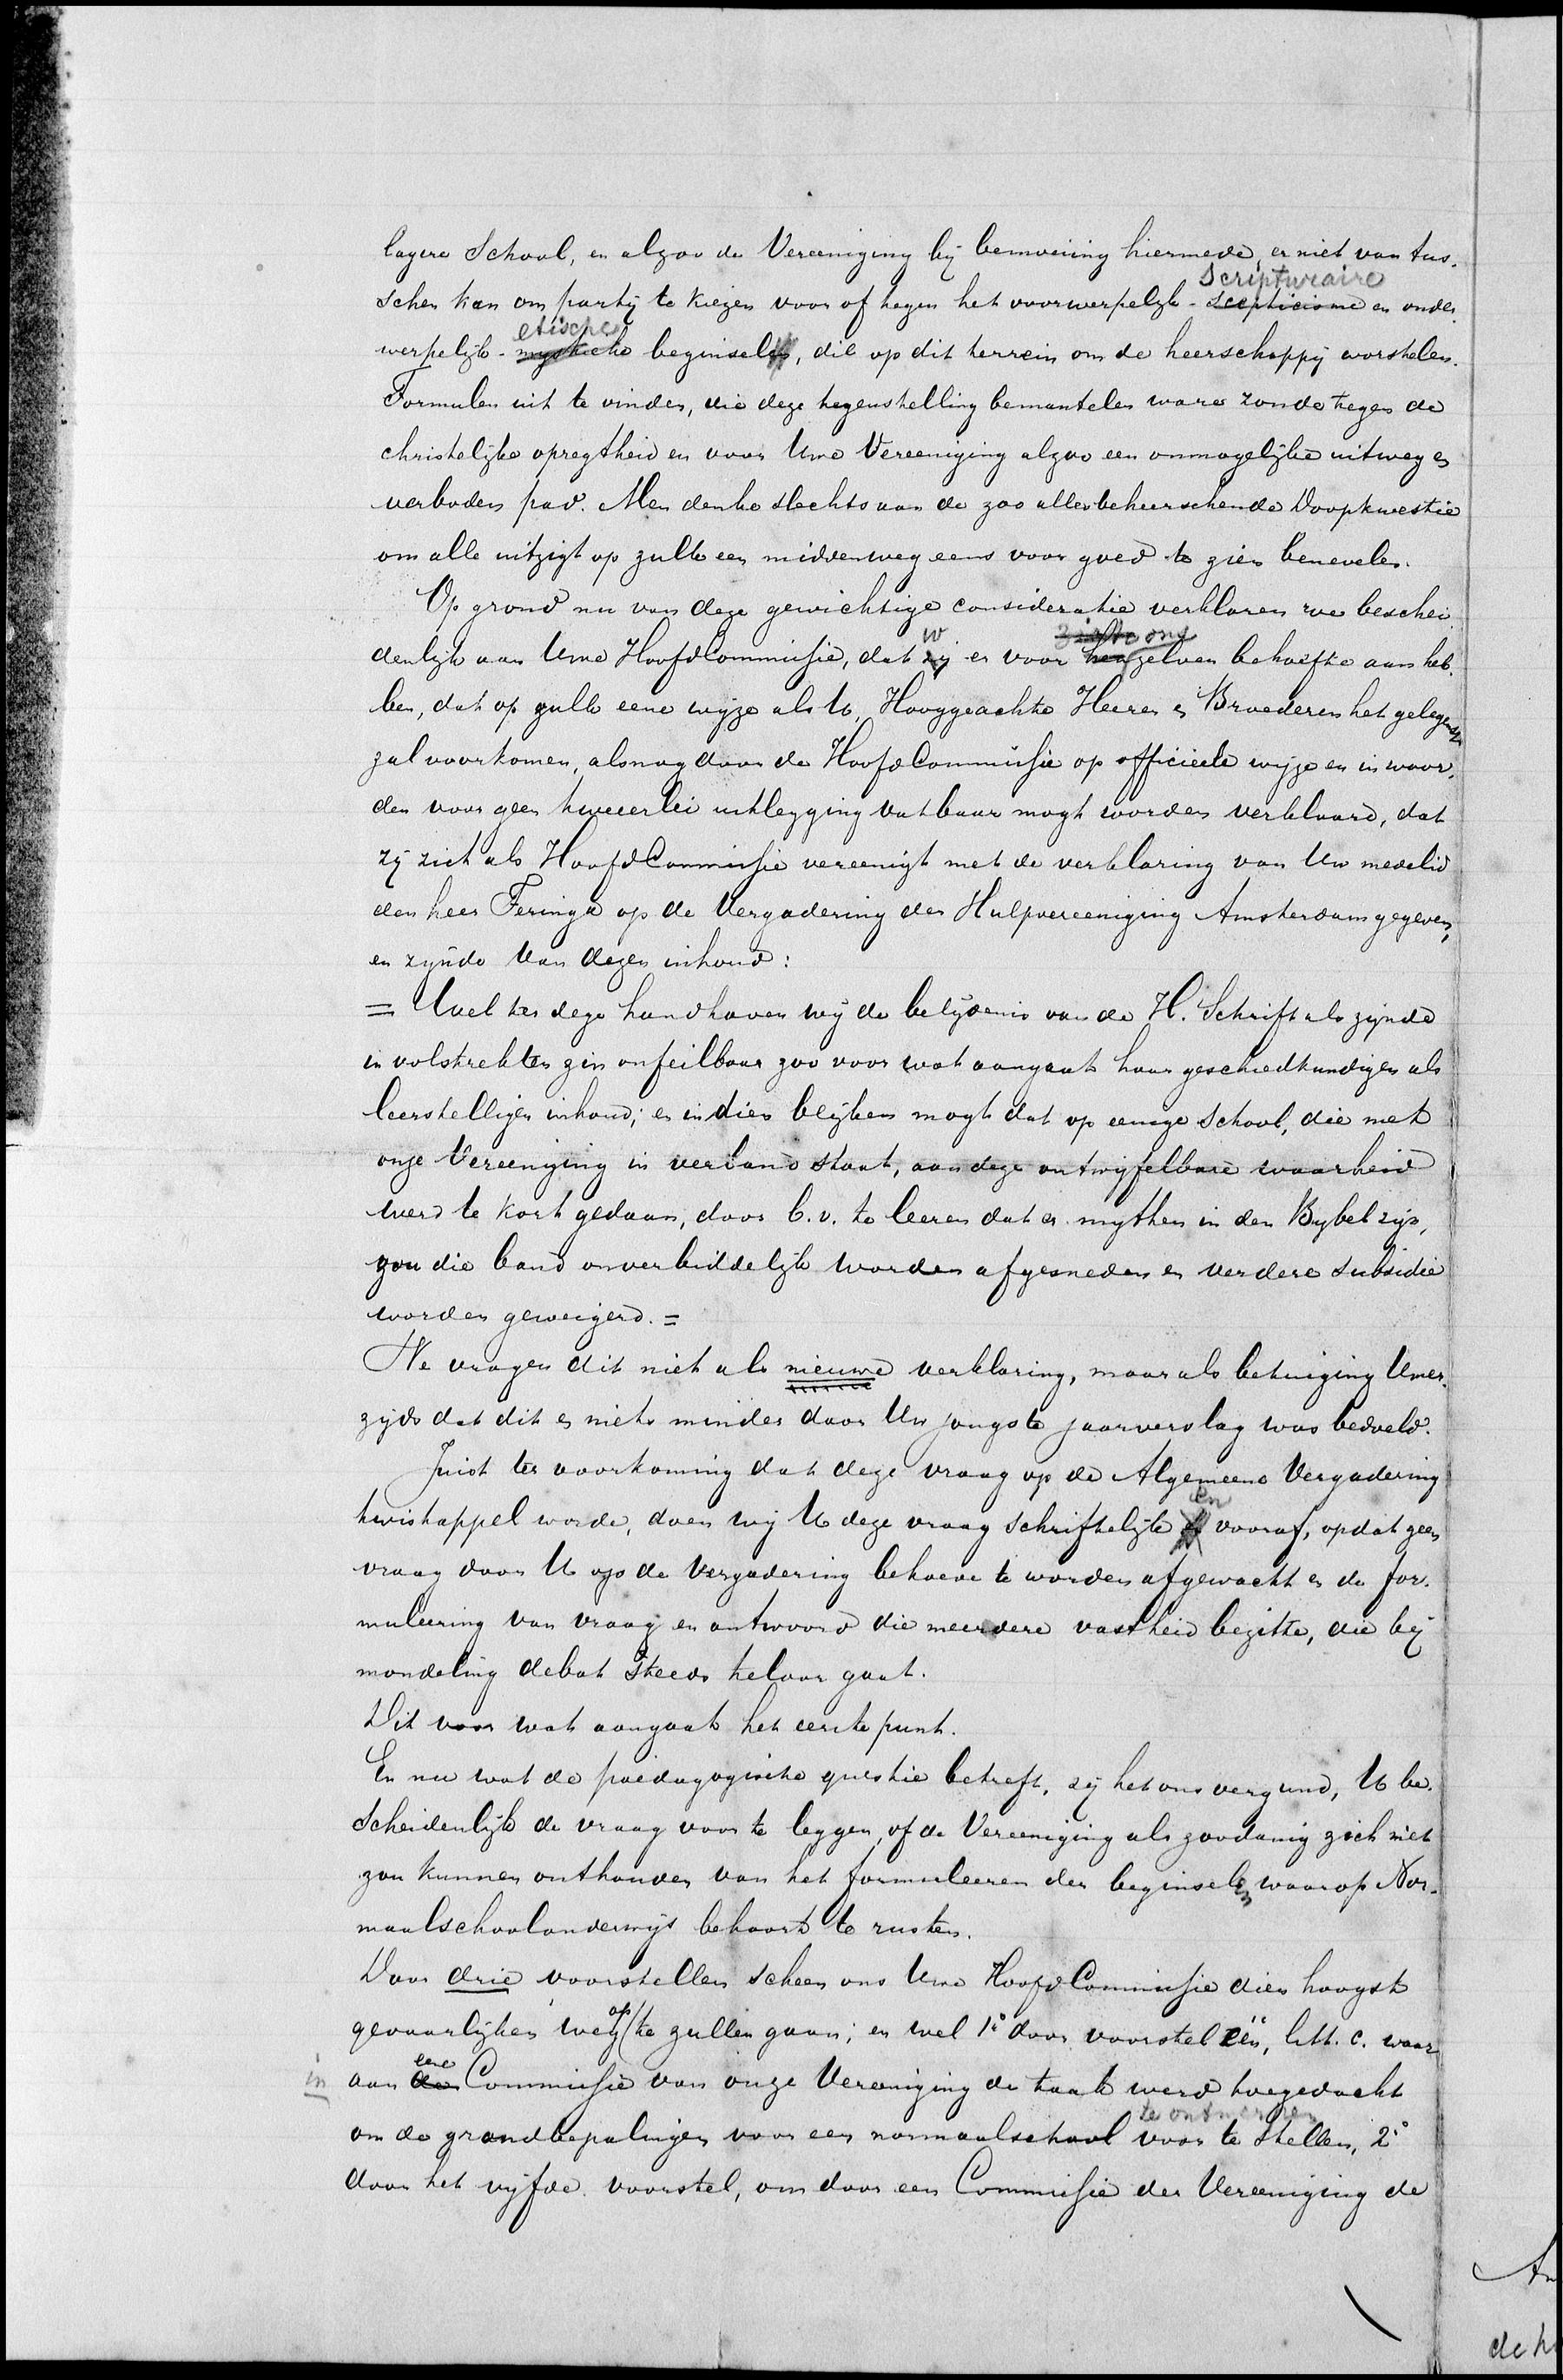 lagere School, en alzoo de Vereeniging bij bemoeiing hiermede, er niet van tus-
Scripturaire
schen kan om partij te kiezen voor of tegen het voorwerpelijk - scepticisme en onder
etische
werpelijk - mystieke beginselen, die op dit terrein om de heerschappij worstelen.
Formulen uit te vinden, die deze tegenstelling bemantelen ware zonde tegen de
christelijke opregtheid en voor Uwe Vereeniging alzoo een onmogelijke uitweg en
verboden pad. Men denke slechts aan de zoo allesbeheerschende Doopkwestie
om alle uitzigt op zulk een middenweg eens voor goed te zien benevelen.
Op grond nu van deze gewichtige consideratie verklaren we beschei
w ons
denlijk aan Uwe HoofdCommissie, dat zij er voor hen zelven behoefte aan heb-
ben, dat op zulk eene wijze als U, Hooggeachte Heeren en Broederen het gelegenst
zal voorkomen, alsnog door de HoofdCommissie op officieele wijze en in woor-
den voor geen tweeerlei uitlegging vatbaar mogt worden verklaard, dat
zij zich als HoofdCommissie vereenigt met de verklaring van Uw medelid
den heer Feringa op de Vergadering der Hulpvereeniging Amsterdam gegeven,
en zijnde van dezen inhoud:
= Wel ter dege handhaven wij de belijdenis van de H. Schrift als zijnde
in volstrekten zin onfeilbaar zoo voor wat aangaat haar geschiedkundigen als
leerstelligen inhoud; en indien blijken mogt dat op eenige School, die met
onze Vereeniging in verband staat, aan deze ontwijfelbare waarheid
werd te kort gedaan, door b.v. te leeren dat er mythen in den Bijbel zijn,
zou die band onverbiddelijk worden afgesneden en verdere subsidie
worden geweigerd. =
We vragen dit niet als nieuwe verklaring, maar als betuiging Uwer-
zijds dat dit en niets minder door Uw jongste jaarverslag was bedoeld.
Juist ter voorkoming dat deze vraag op de Algemeene Vergadering
en
twistappel worde, doen wij U deze vraag schriftelijk vooraf, opdat geen
vraag door U op de Vergadering behoeve te worden afgewacht en de for-
muleering van vraag en antwoord die meerdere vastheid bezitte, die bij
mondeling debat steeds teloor gaat.
Dit voor wat aangaat het eerste punt.
En nu wat de paedagogische questie betreft, zij het ons vergund, U be-
scheidenlijk de vraag voor te leggen, of de Vereeniging als zoodanig zich niet
zou kunnen onthouden van het formuleeren der beginselen waarop Nor-
maalschoolonderwijs behoort te rusten.
Door drie voorstellen scheen ons Uwe HoofdCommissie dien hoogst
op
gevaarlijken weg te zullen gaan; en wel 1° door voorstel één, litt. c. waar
eene
in aan de Commissie van onze Vereeniging de taak werd toegedacht
te ontwerpen
om de grondbepalingen voor een normaalschool voor te stellen, 2°
door het vijfde voorstel, om door een Commissie der Vereeniging de